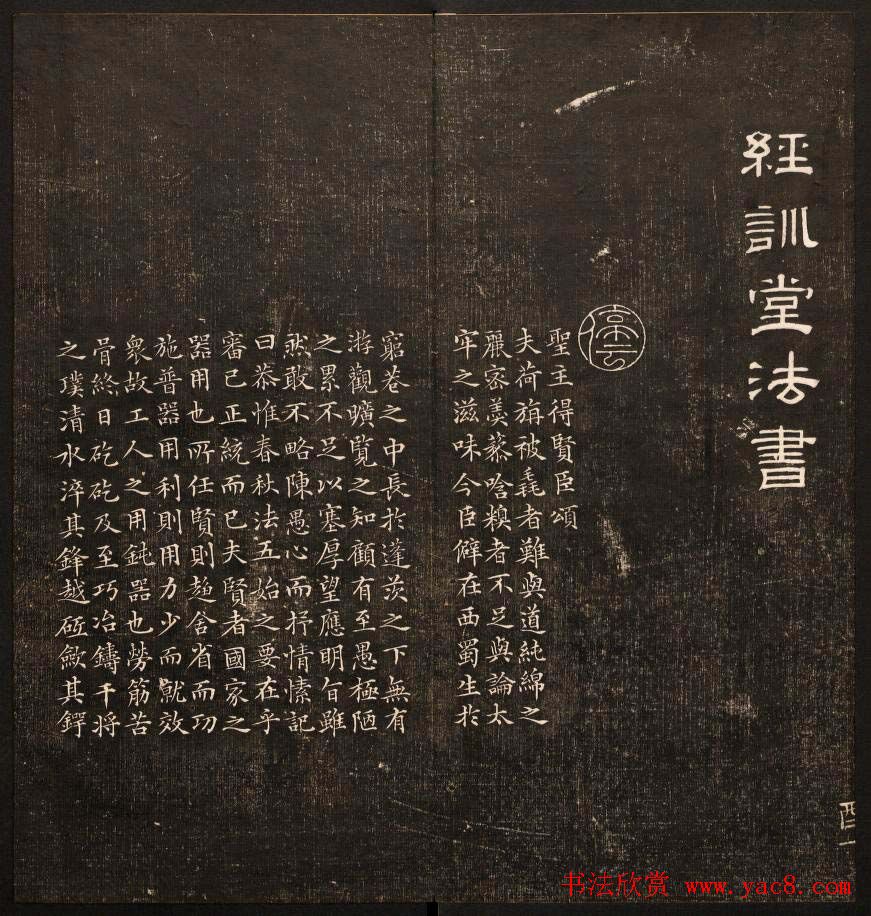 經訓堂法書
停雲
聖主得賢臣頌
夫荷旃被毳者難與道純綿之
麗密羹藜唅糗者不足與論太
牢之滋味今臣僻在西蜀生於
窮巷之中長於蓬茨之下無有
游觀曠覽之知顧有至愚極陋
之累不足以塞厚望應明旨雖
然敢不略陳愚心而抒情愫記
曰恭惟春秋法五始之要在乎
審己正統而已夫賢者國家之
器用也所任賢則趨舍省而功
施普器用利則用力少而就效
衆故工人之用鈍器也勞筋苦
骨終日矻矻及至巧冶鑄干將
之璞清水淬其鋒越砥歛其鍔
酉一
书法欣赏 www.yac8.com